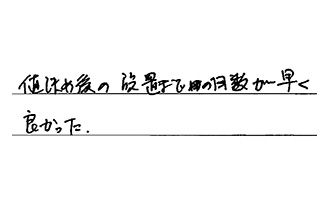 値決め後の設置までの日数が早く
良かった.